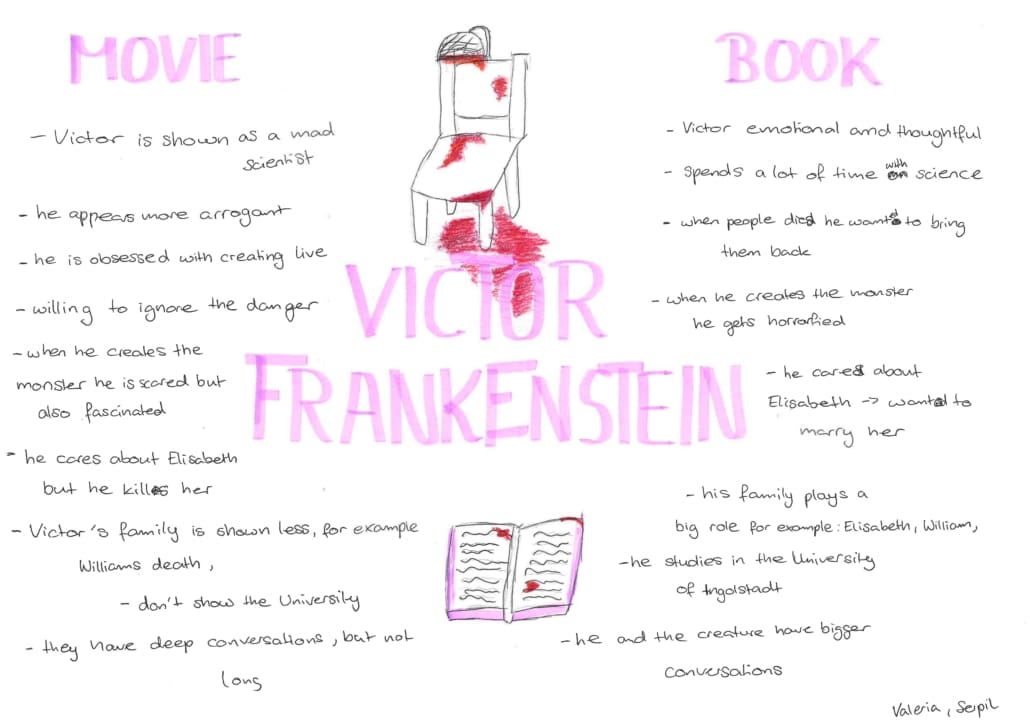 MOVIE
- Victor is shown as a mad
scientist
- he appears more arrogant
- he is obsessed with creating live
- willing to ignore the danger
- when he creates the
monster he is scared but
also fascinated
- he cares about Elisabeth
but he killes her
- Victor's family is shown less, for example
Williams death,
- don't show the University
- they have deep conversations, but not
long
VICTOR
FRANKENSTEIN
BOOK
- Victor emotional and thoughtful
- spends a lot of time with science
- when people died he wants to bring
them back
- when he creates the monster
he gets horrorfied
- he cares about
Elisabeth -> wants to
marry her
- his family plays a
big role for example: Elisabeth, William,
- he studies in the University
of Ingolstadt
- he and the creature have bigger
conversations
Valeria, Serpil